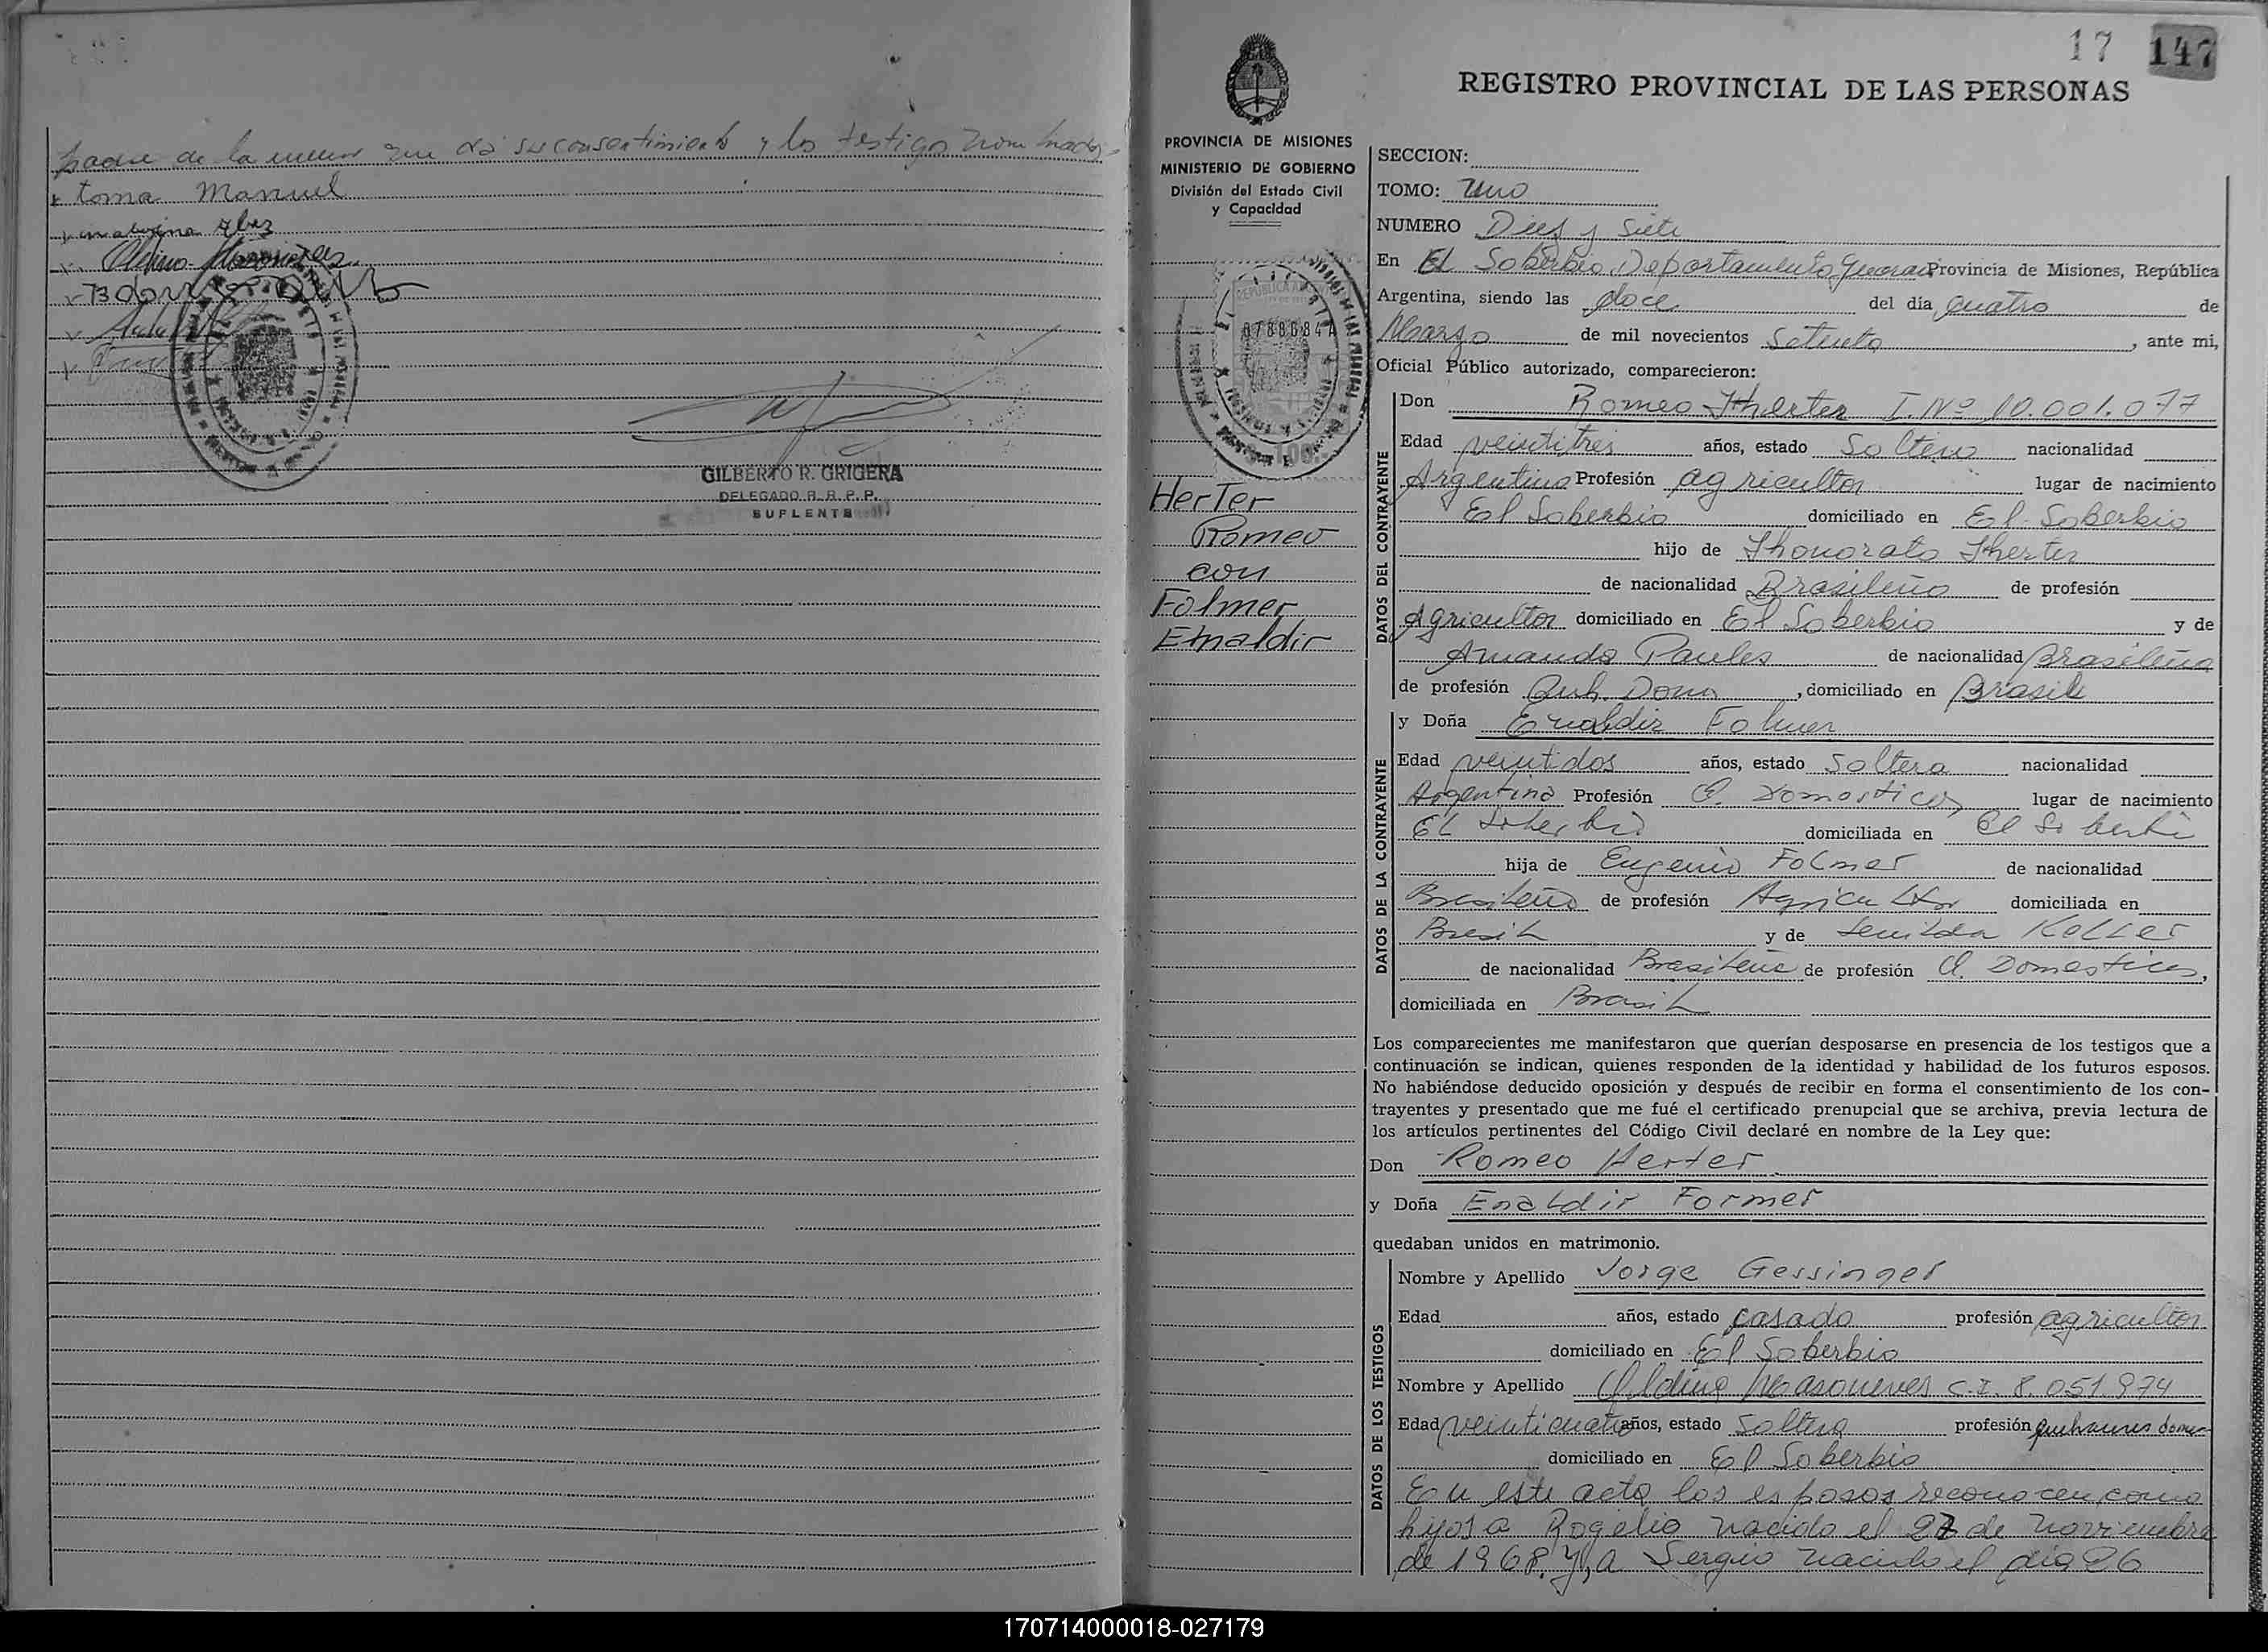 padre de la menor que da su consentimiento y los testigo nombrados
toma Manuel
GILBERTO R. GRIGERA
DELEGADO R. R. P. P.
SUPLENTE
17 147
REGISTRO PROVINCIAL DE LAS PERSONAS
PROVINCIA DE MISIONES
MINISTERIO DE GOBIERNO
División del Estado Civil
y Capacidad
Herter
Romeo
con
Folmer
Enaldir
SECCION:
TOMO: Uno
NUMERO Diez y Siete
En El Soberbio, Departamento Guarani Provincia de Misiones, República
Argentina, siendo las doce del día cuatro de
Marzo de mil novecientos Setenta, ante mi,
Oficial Público autorizado, comparecieron:
DATOS DEL CONTRAYENTE
Don Romeo Therter I. Nº 10.001.077
Edad veintitres años, estado Soltero nacionalidad
Argentino Profesión agricultor lugar de nacimiento
El Soberbio domiciliado en El Soberbio
hijo de Thonorato Therter
de nacionalidad Brasileño de profesión
Agricultor domiciliado en El Soberbio y de
Amanda Paules de nacionalidad Brasileña
de profesión Queh. Dom , domiciliado en Brasil
DATOS DE LA CONTRAYENTE
y Doña Enaldir Folmer
Edad veintidos años, estado Soltera nacionalidad
Argentina Profesión Q. Domosticos lugar de nacimiento
El Soberbio domiciliada en El Soberbi
hija de Eugenio Folmer de nacionalidad
Brasileño de profesión Agricultor domiciliada en
Brasil y de Senilda Keller
de nacionalidad Brasileña de profesión Q. Domesticos,
domiciliada en Brasil
Los comparecientes me manifestaron que querían desposarse en presencia de los testigos que a
continuación se indican, quienes responden de la identidad y habilidad de los futuros esposos.
No habiéndose deducido oposición y después de recibir en forma el consentimiento de los con-
trayentes y presentado que me fué el certificado prenupcial que se archiva, previa lectura de
los artículos pertinentes del Código Civil declaré en nombre de la Ley que:
Don Romeo Herter
y Doña Enaldir Former
quedaban unidos en matrimonio.
DATOS DE LOS TESTIGOS
Nombre y Apellido Jorge Gessinger
Edad años, estado casado profesión agricultor
domiciliado en El Soberbio
Nombre y Apellido C.I. 8.051.974
Edad veinticuatro años, estado Soltera profesión
domiciliado en El Soberbio
En este acto los esposos reconocen como
hijos a Rogelio nacido el 27 de noviembre
de 1968. y, a Sergio nacido el dia 26
170714000018-027179